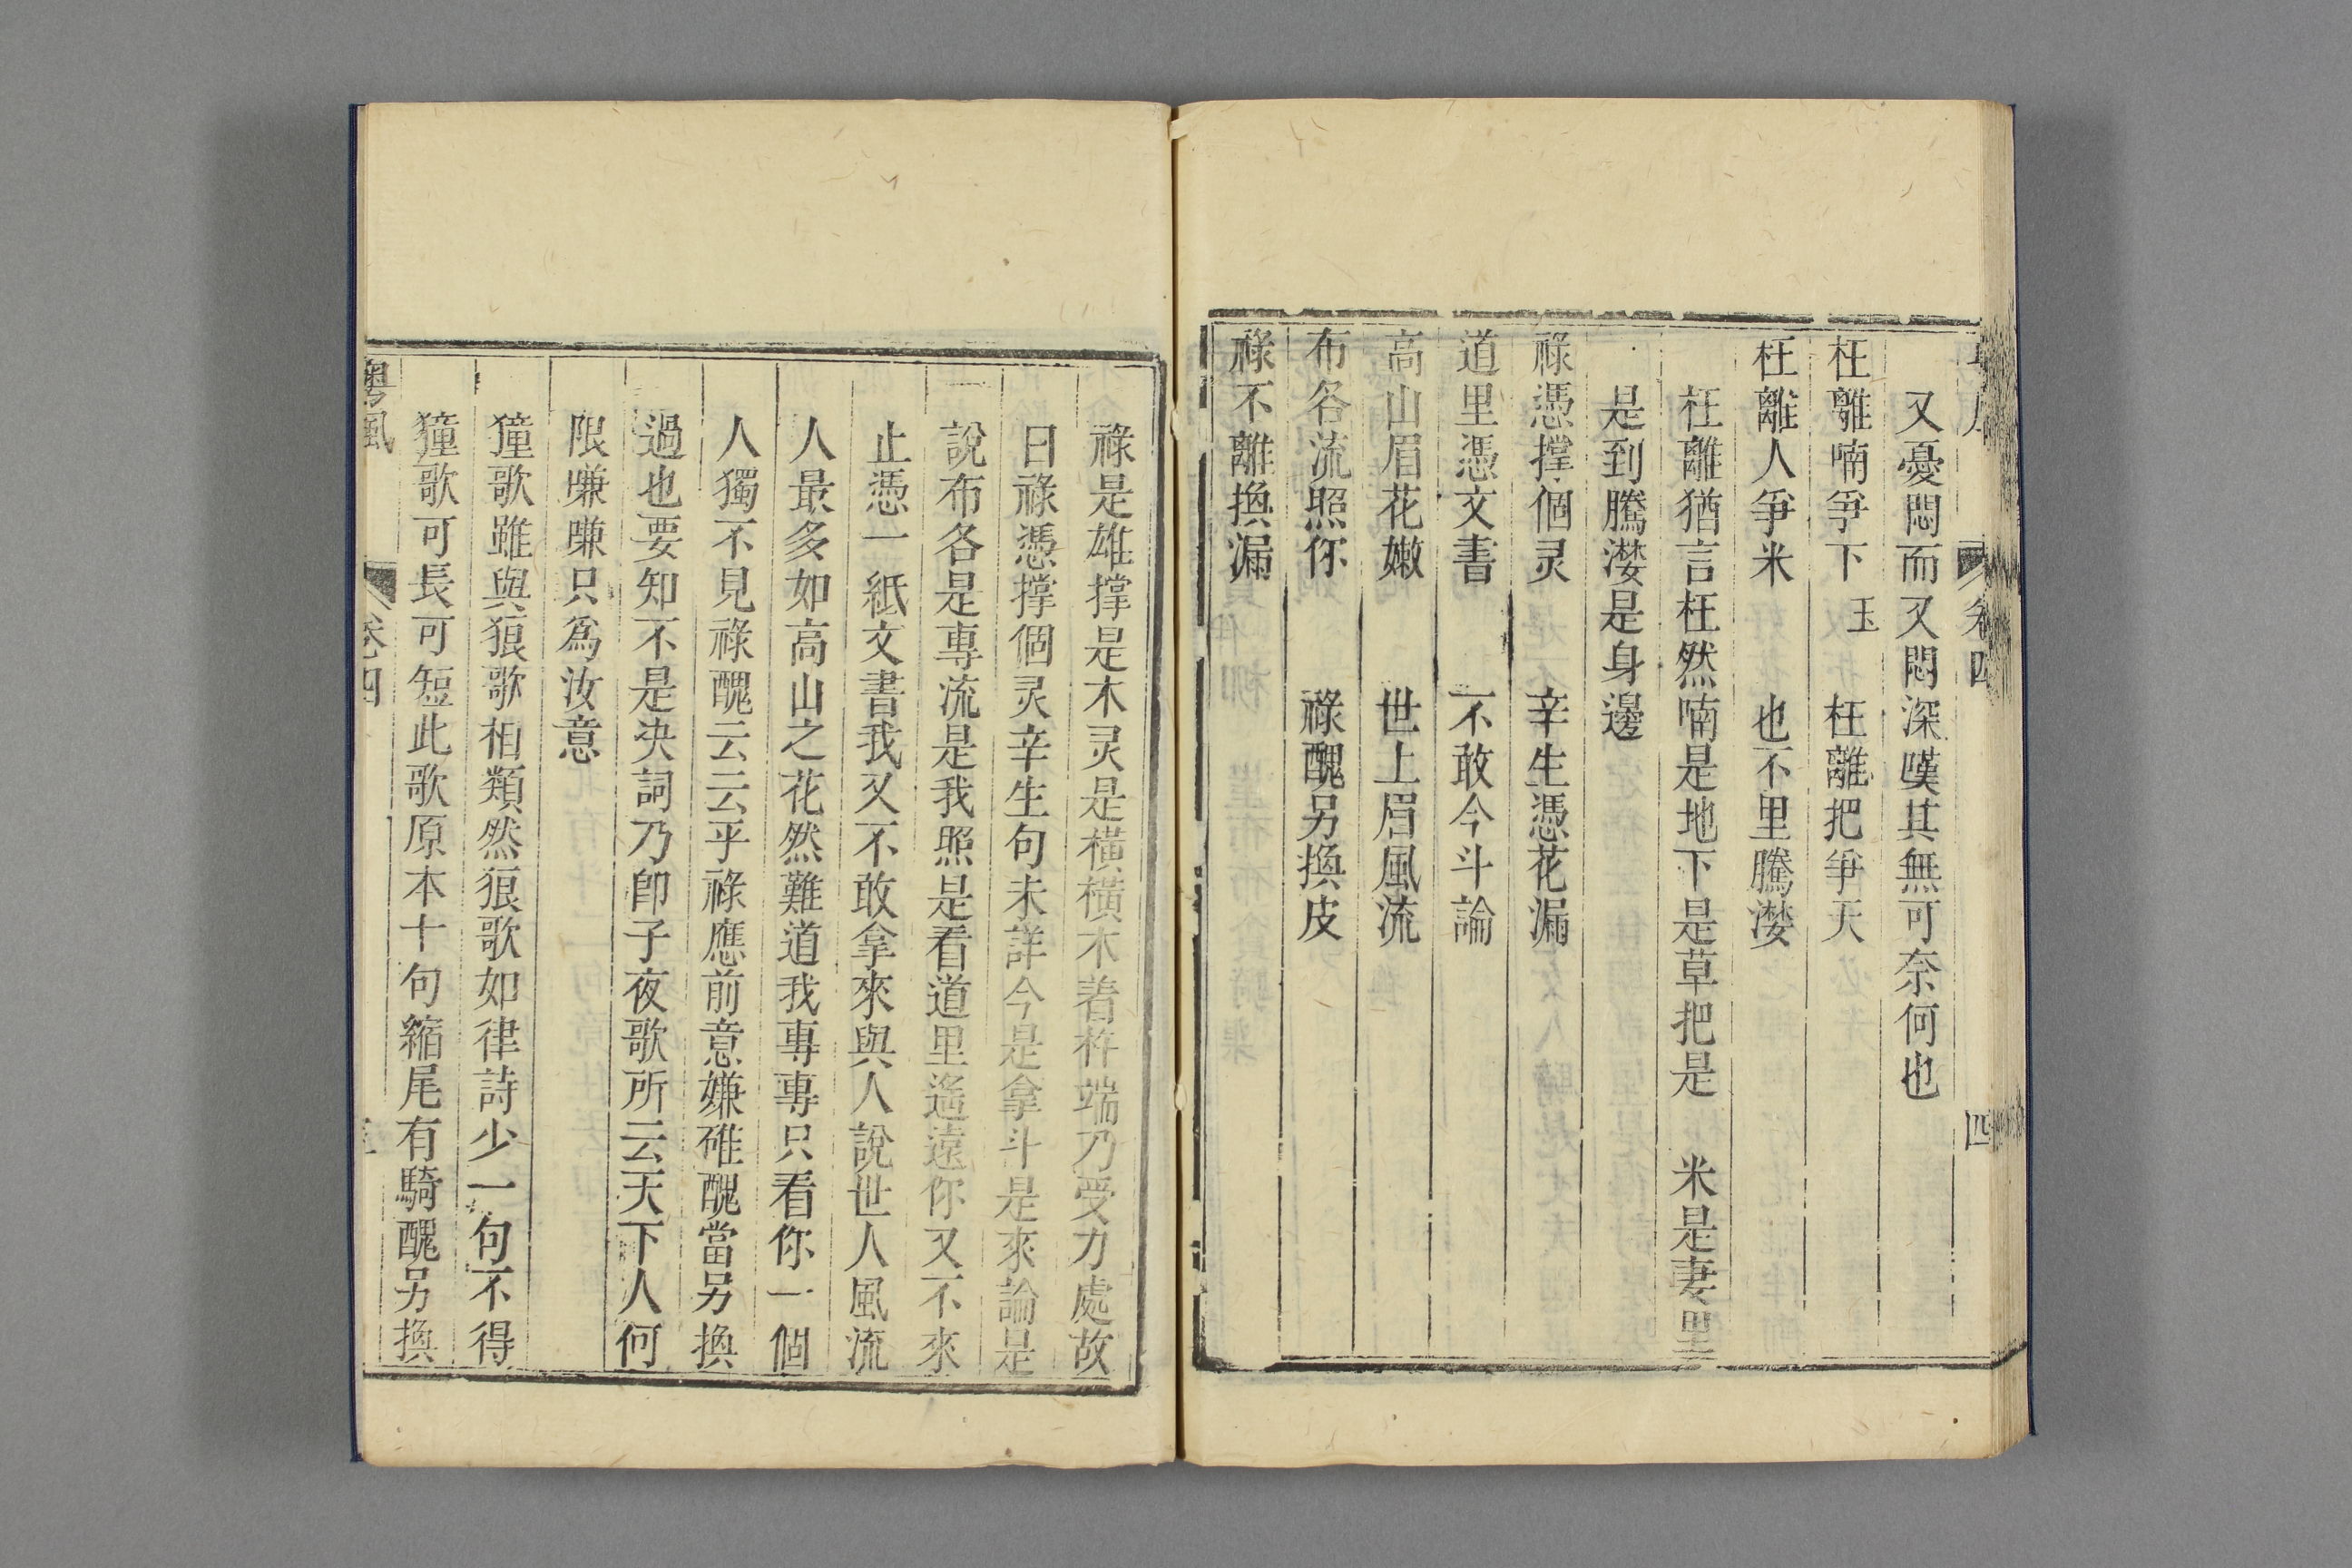 卷四
四
又憂悶而又悶深嘆其無可奈何也
枉離喃爭下 玉 枉離把爭天
枉離人爭米 也不里騰漤
枉離猶言枉然喃是地下是草把是 米是妻里
是到騰漤是身邊
祿憑撑個灵 辛生憑花漏
道里憑文書 不敢今斗論
高山眉花嫩 世上眉風流
布各流照你 祿醜另換皮
祿不離換漏
祿是雄撑是木灵是橫橫木着杵端乃受力處故
曰祿憑撑個灵辛生句未詳今是拿斗是來論是
說布各是專流是我照是看道里遙遠你又不來
止憑一紙文書我又不敢拿來與人說世人風流
人最多如高山之花然難道我專專只看你一個
人獨不見祿醜云云乎祿應前意嫌碓醜當另換
過也要知不是決詞乃卽子夜歌所云天下人何
限慊慊只爲汝意
獞歌雖與狼歌相類然狼歌如律詩少一句不得
獞歌可長可短此歌原本十句縮尾有騎醜另換
粤風
卷四